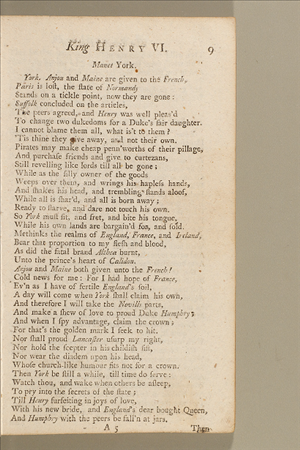 King HENRY VI. 9
Manet York.
York. Anjou and Maine are given to the French,
Paris is lost, the state of Normandy
Stands on a tickle point, now they are gone:
Suffolk concluded on the articles,
The peers agreed, and Henry was well pleas'd
To change two dukedoms for a Duke's fair daughter.
I cannot blame them all, what is't to them?
'Tis thine they give away, and not their own.
Pirates may make cheap penn'worths of their pillage,
And purchase friends and give to curtezans,
Still revelling like lords till all be gone;
While as the silly owner of the goods
Weeps over them, and wrings his hapless hands,
And shakes his head, and trembling stands aloof,
While all is shar'd, and all is born away;
Ready to starve, and dare not touch his own.
So York must sit, and fret, and bite his tongue,
While his own lands are bargain'd for, and sold.
Methinks the realms of England, France, and Ireland,
Bear that proportion to my flesh and blood,
As did the fatal brand Althea burnt,
Unto the prince's heart of Calidon.
Anjou and Maine both given unto the French!
Cold news for me: For I had hope of France,
Ev'n as I have of fertile England's soil,
A day will come when York shall claim his own,
And therefore I will take the Nevills parts,
And make a shew of love to proud Duke Humphry;
And when I spy advantage, claim the crown;
For that's the golden mark I seek to hit.
Nor shall proud Lancaster usurp my right,
Nor hold the scepter in his childish fist,
Nor wear the diadem upon his head,
Whose church-like humour fits not for a crown.
Then York be still a while, till time do serve:
Watch thou, and wake when others be asleep,
To pry into the secrets of the state;
Till Henry surfeiting in joys of love,
With his new bride, and England's dear bought Queen,
And Humphry with the peers be fall'n at jars.
A 5 Then